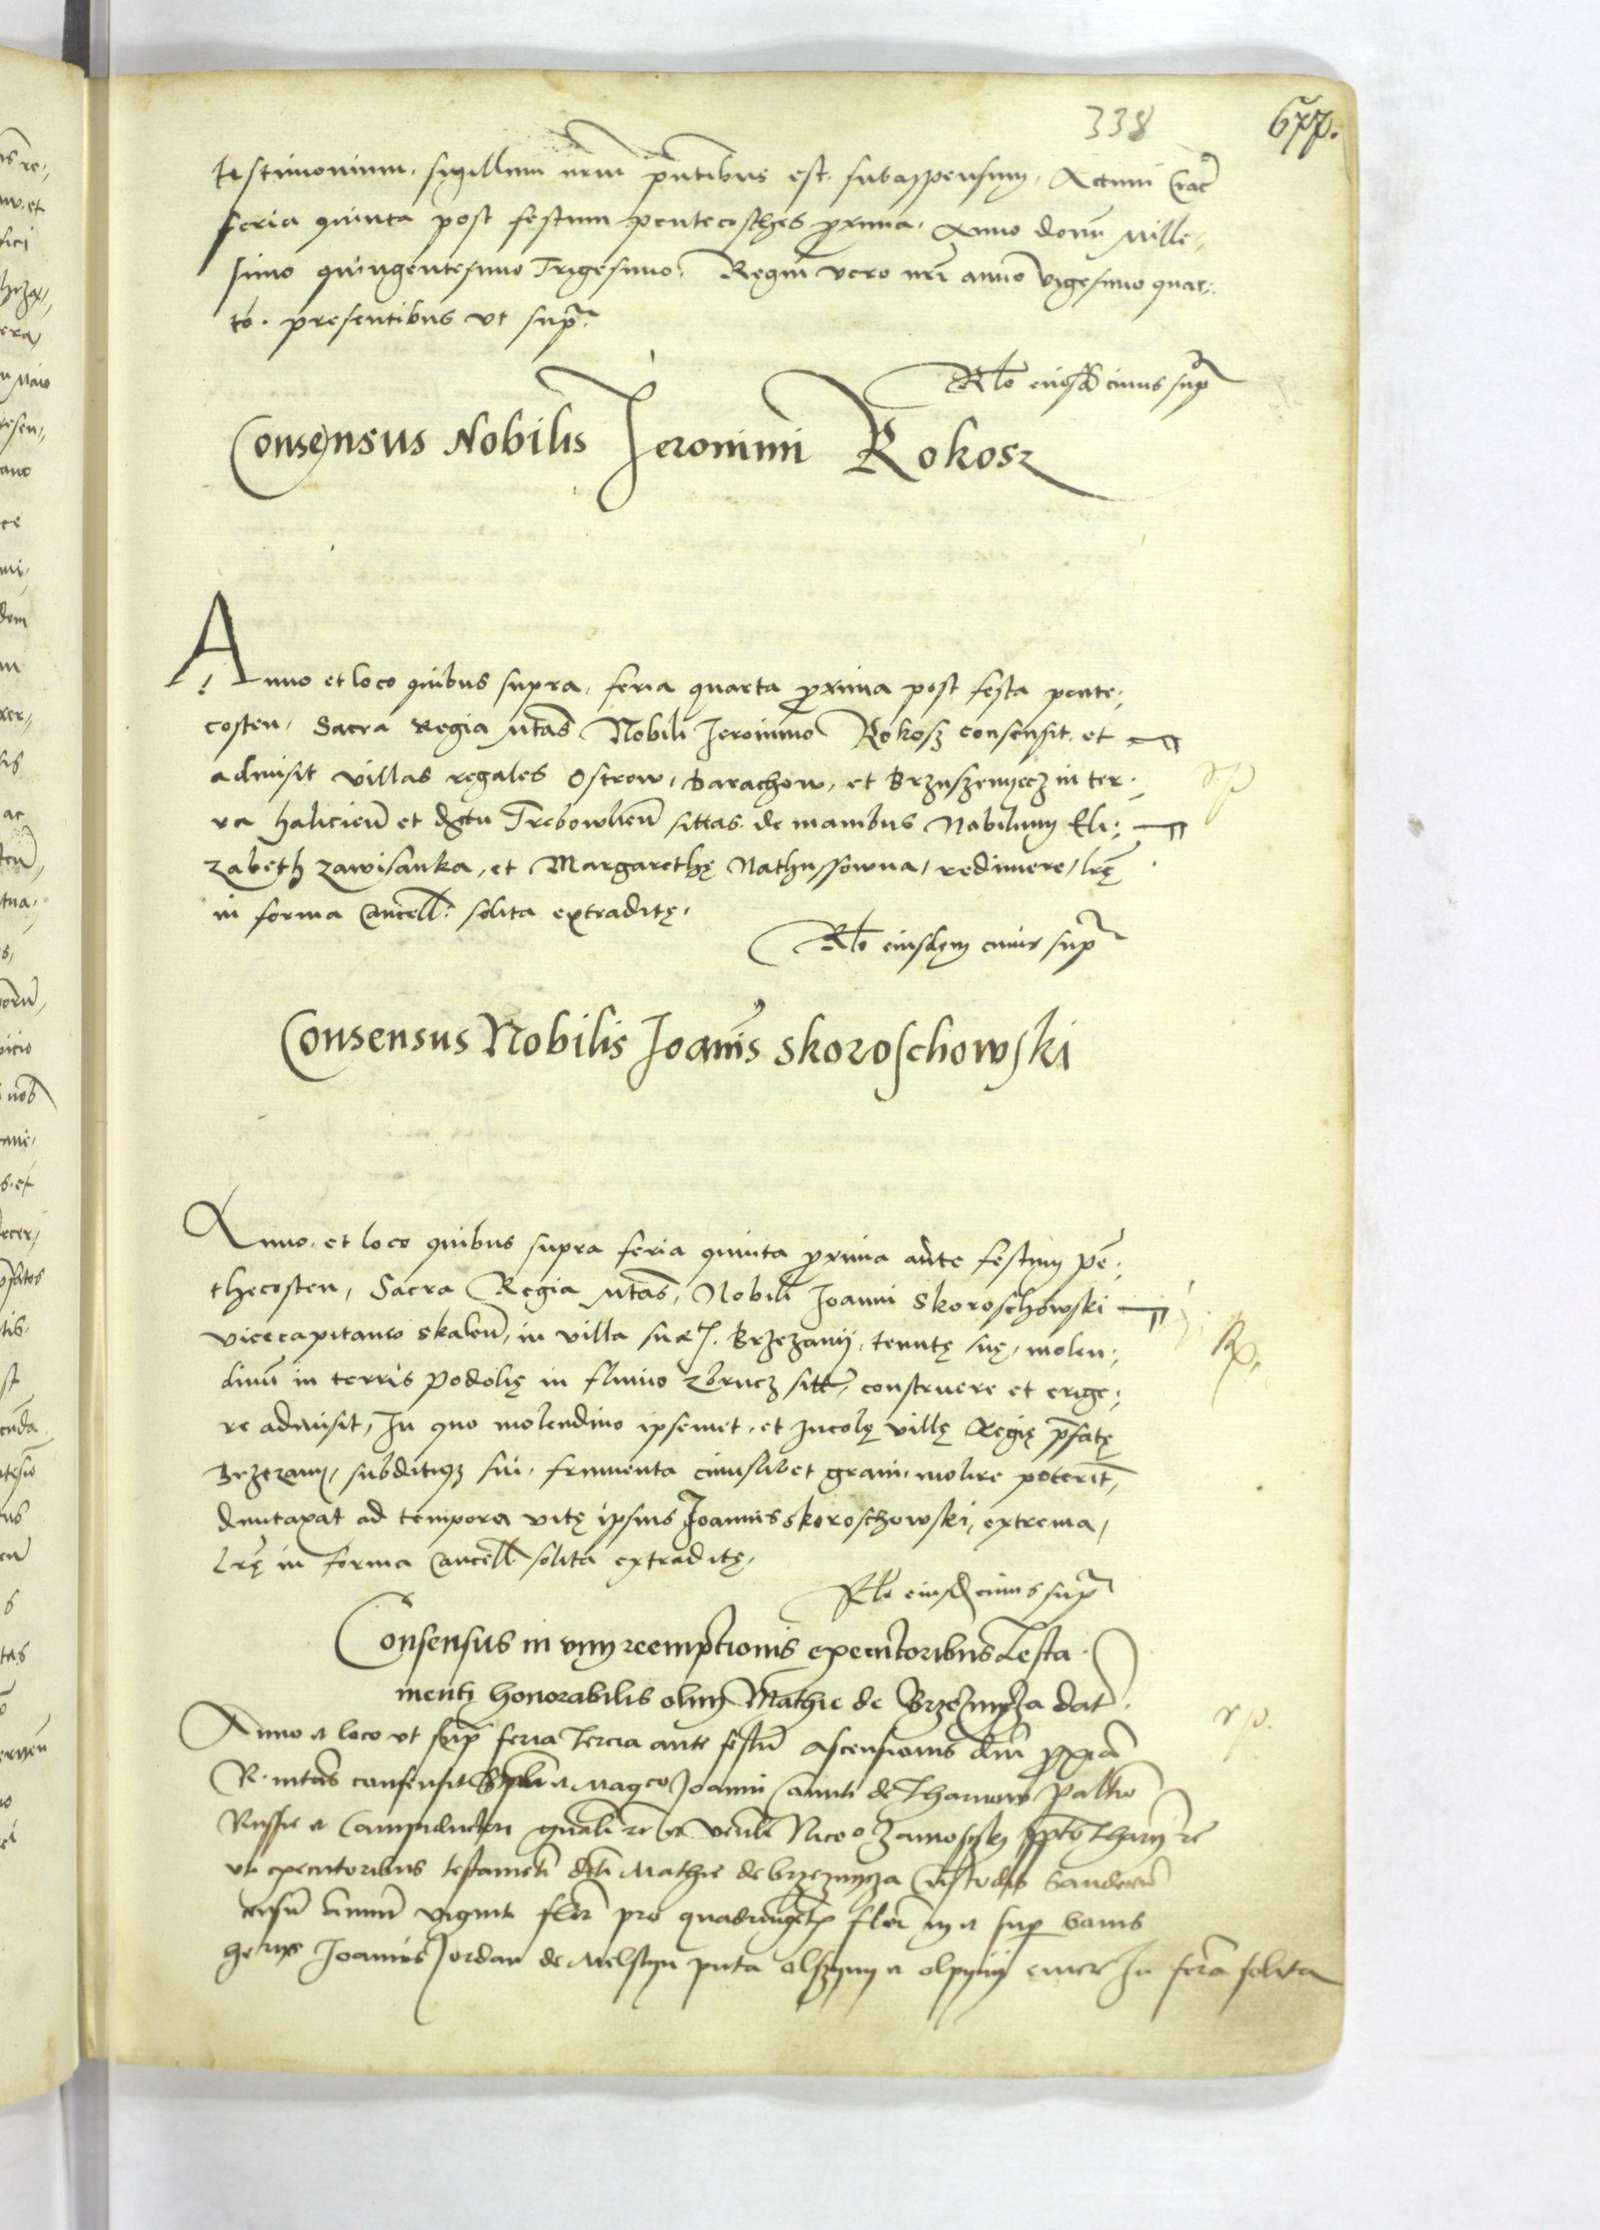 338
677.
testimonium. sigillum nrm pntibus est subappensum. Actum Crac
feria quinta post festum pentecosthes pxima. Anno domi Mille,
simo quingentesimo Trigesimo. Regni vero nri anno vigesimo quar,
to. presentibus vt supra
Rlo eiusd cuius supra
Consensus Nobilis Jeronimi Rokosz
Anno et loco quibus supra, feria quarta pxima post festa pente,
costen, Sacra Regia Mtas Nobili Jeronimo Rokosz consensit et
admisit villas regales Ostrow, Barachow, et Brzuszenyecz in ter,
ra halicien et dctu Trebowlien sittas de manibus Nobilium Eli,
zabeth zawisanka, et Margarethę Nathussowna, redimere, lrę
in forma Cancell. solita extraditę.
Rlo eiusdem cuius supra
Consensus Nobilis Joannis Skoroschowski
Anno. et loco quibus supra feria quinta pxima ante festum pē,
thecosten, Sacra Regia Mtas, Nobili Joanni Skoroschowski
vicecapitaneo skalen, in villa suae M. Brzezanij, tenutę suę, molen,
dinū in terris Podolię in fluvio zbrucz sitt, construere et erige,
re admisit, In quo molendino ipsemet et Incolę villę Regię pfatę
Brzezanij, subditiqz sui, frumenta cuiuslibet grani, molire poterint,
dumtaxat ad tempora vitę ipsius Joannis Skoroschowski, extrema,
lrę in forma Cancell solita extraditę.
Rlo eiusd cuius supra
Consensus in vim reemptionis executoribus Testa
menti honorabilis olim Mathie de Brzeznycza dat
Anno et loco vt sup feria tercia ante festū ascensionis dni pxia
R. mtas consensit et Magco Joanni Comiti de Tharnow Palatino
Russie et Campiductori gnali Nicolao Zamoyski
vti executoribus testamenti dcti Mathie de brzeznycza Custodis
censū annuū viginti flor pro quadringentis flor in et sup bonis
Joannis Jordan de Melstyn puta olszyny et olpiny emere In forma solita